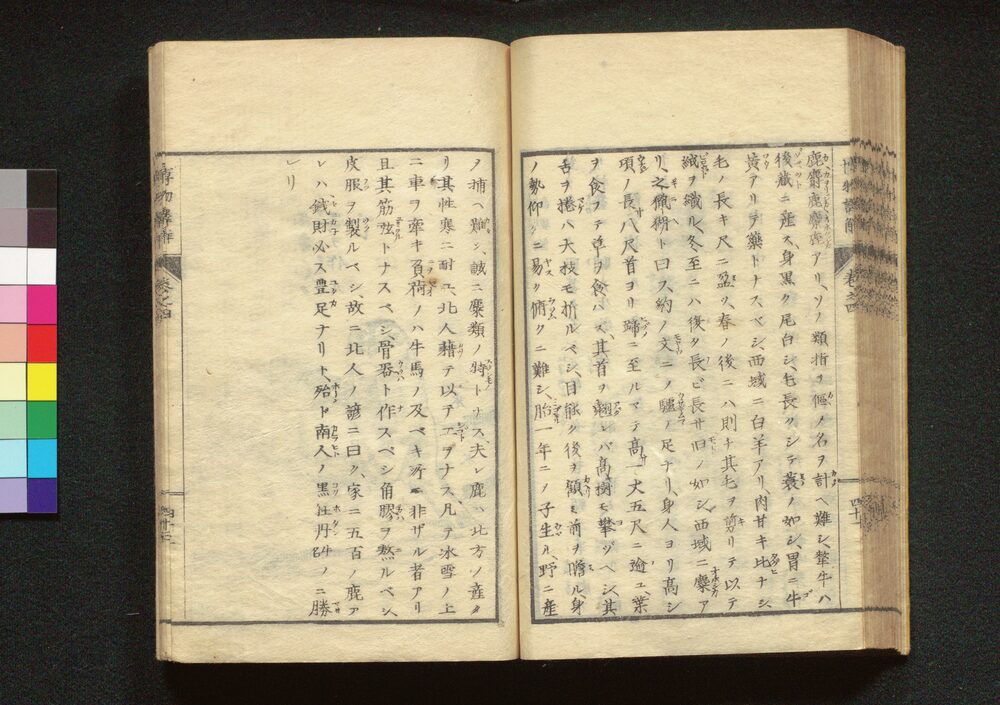 鹿麝麂麋麈アリ、ソノ類指ヲ傴ノ名ヲ計ヘ難シ、犛牛ハ
後藏ニ産ス、身黒ク尾白シ、毛長クシテ蓑ノ如シ、胃ニ牛
黄アリテ藥トナスベシ、西域ニ白羊アリ、肉甘キ比ナシ、
毛ノ長キ尺ニ盈ツ、春ノ後ニハ則チ其毛ヲ剪リテ以テ
絨ヲ織ル、冬至ニハ後タ長ビ長サ旧ノ如シ、西域ニ麋ア
リ、之
ト曰フ、約ノ文ニノ驢ノ足ナリ、身人ヨリ髙シ
項ノ長八尺首ヨリ蹄ニ至ルマテ髙一丈五尺ニ逾ユ、葉
ヲ食フテ草ヲ食ハズ、其首ヲ翹レバ髙樹モ攀ヅベシ、其
舌ヲ捲ハ大枝モ折ルベシ、目能ク後ヲ顧ミ前ヲ瞻ル、身
ノ勢仰クニ易ク俯クニ難シ、胎一年ニノ子生ル、野ニ産
ヲ捕ヘ難シ、誠ニ麋類ノ特トナス、夫レ鹿ハ北方ノ産ナ
リ其性寒ニ耐ユ、北人藉テ以テ工ヲナス、凡テ冰雪ノ上
ニ車ヲ牽キ負荷ノハ牛馬ノ及ベキ所ニ非ザル者アリ
且其筋弦トナスベシ、骨器ト作スベシ角膠ヲ熬ルベシ、
皮服ヲ製ルベシ、故ニ北人ノ諺ニ曰ク、家ニ五百ノ鹿ア
レハ錢財必ス豊足ナリト、殆ド南人ノ黒牡丹
ノニ勝
レリ
卷之四
四十